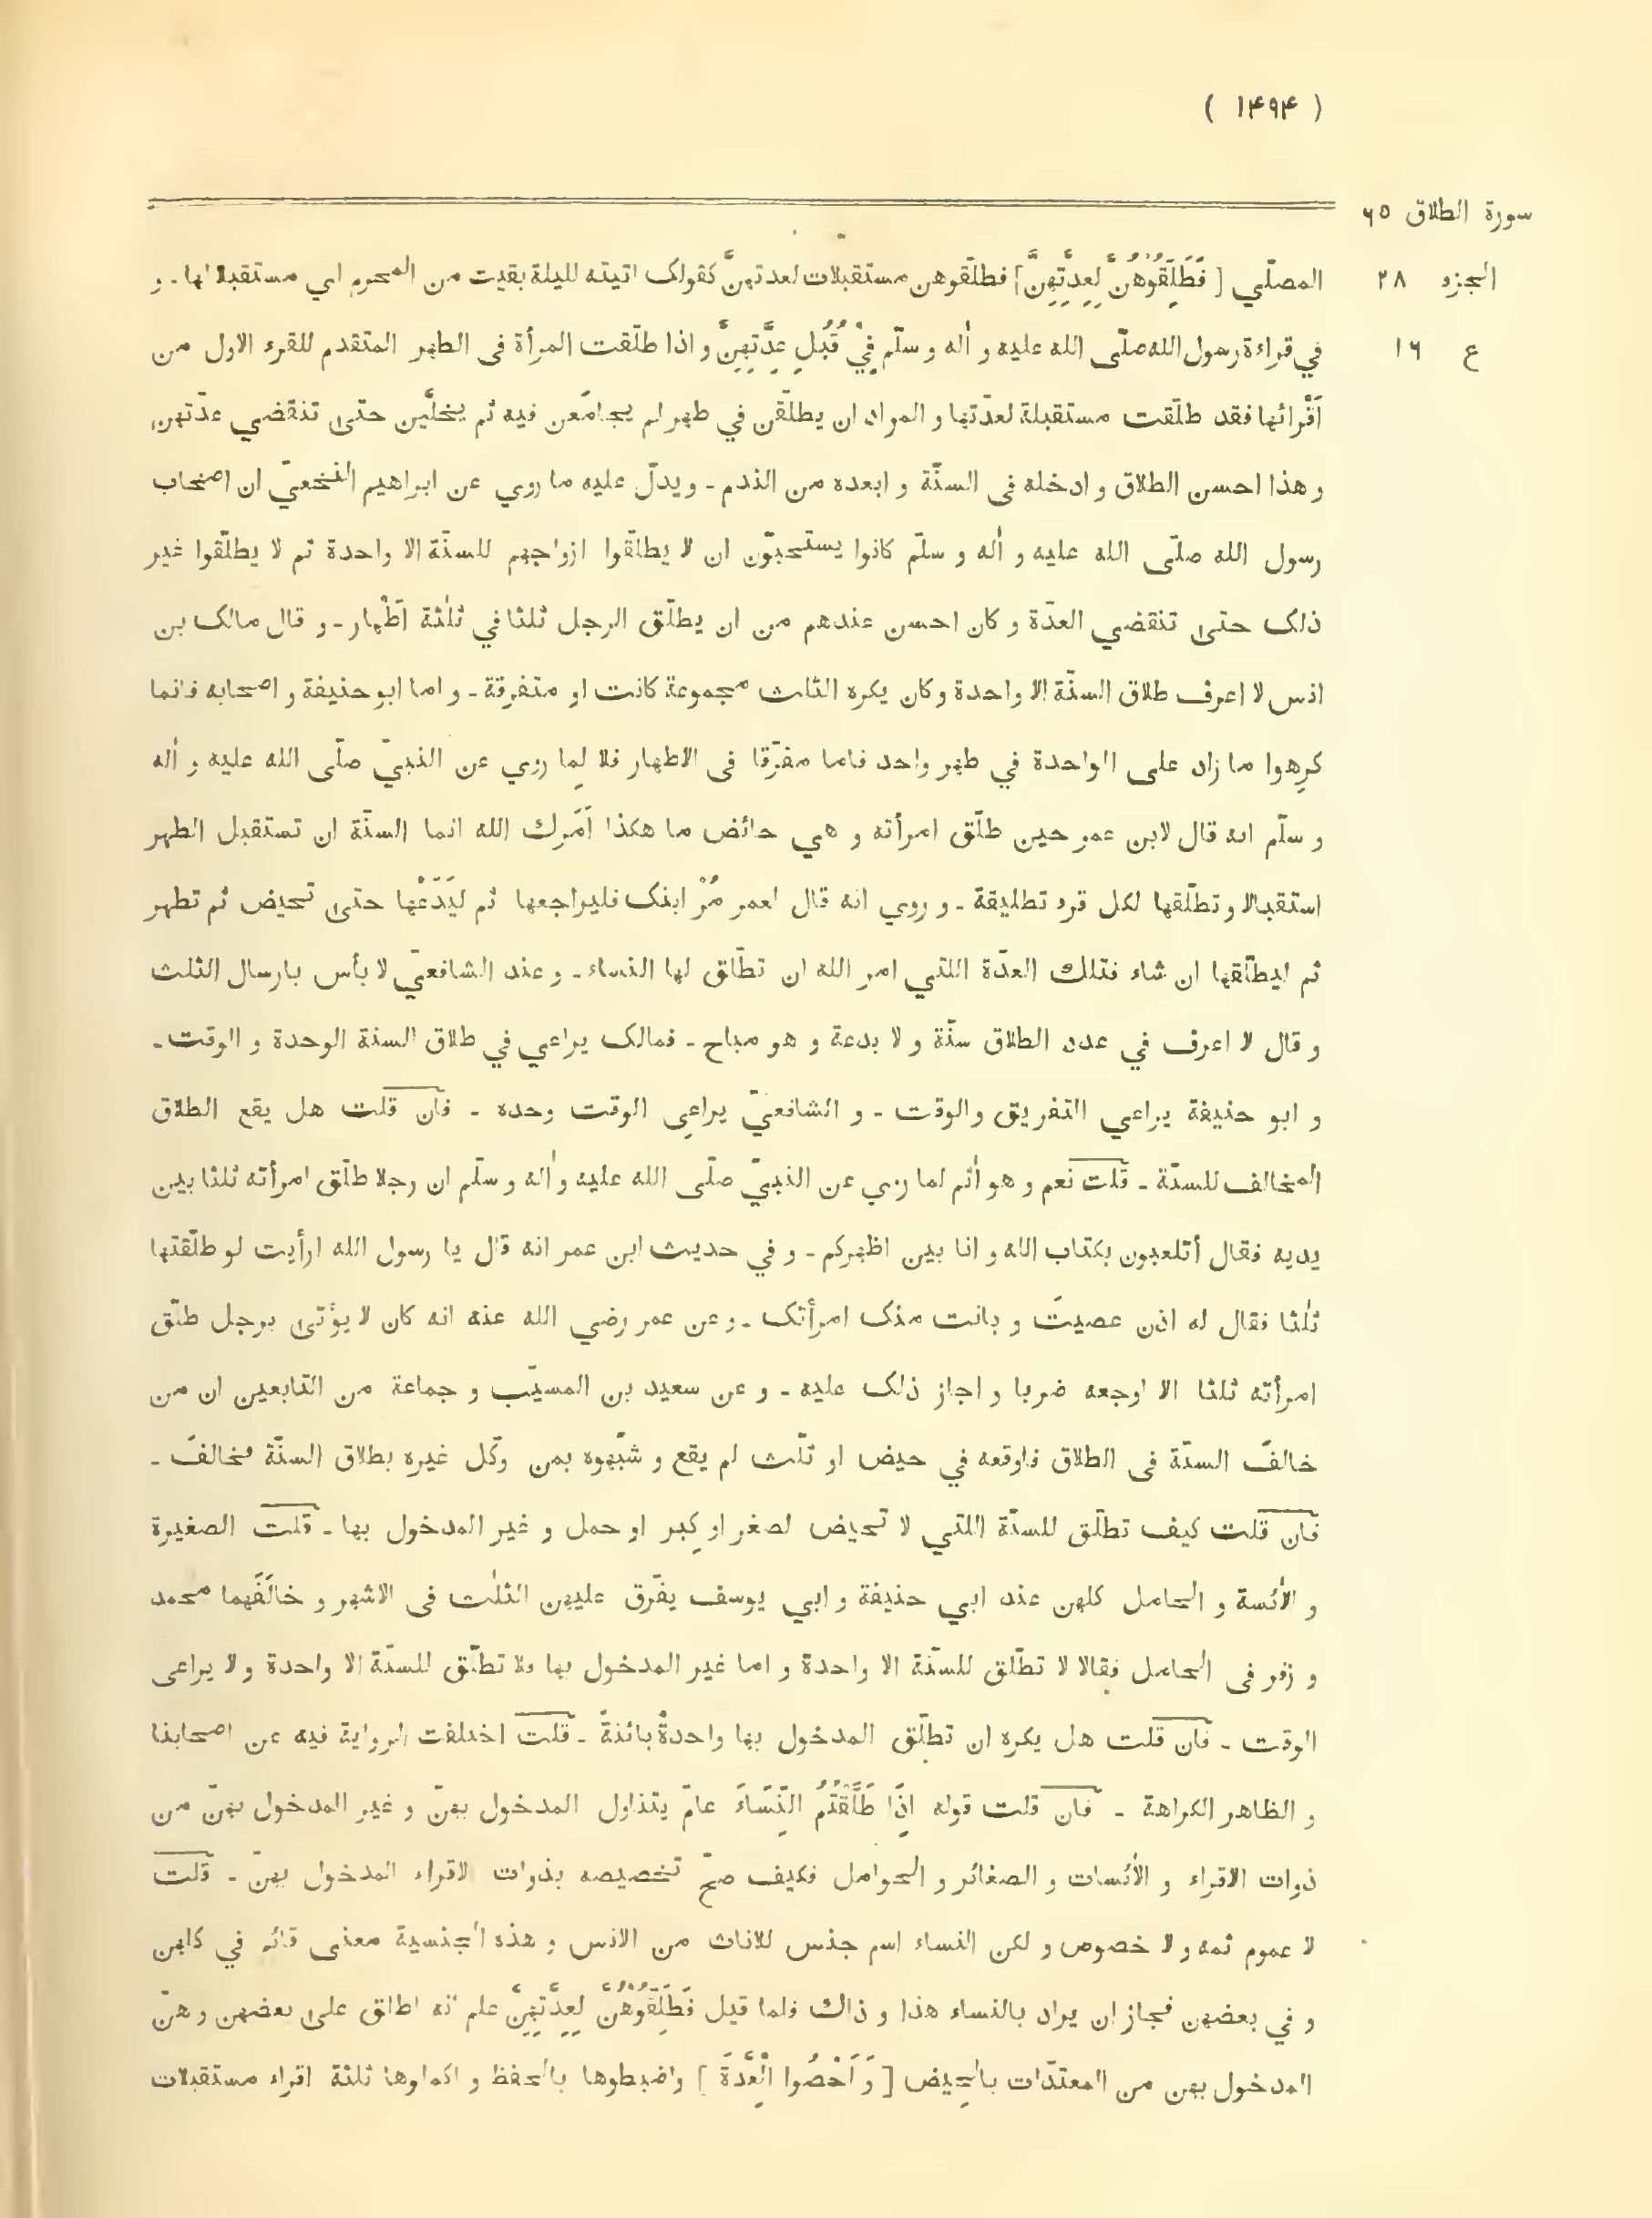 ( ۱۴۹۴ )
سورة الطلاق ٦٥
الجزء ٢٨
ع ١٦
المصلّي [ فَطَلِّقُوْهُنَّ لِعِدَّتِهِنَّ ] فطلّقوهن مستقبلات لعدتهنّ كقولك اتيته لليلة بقيت من المحرم اي مستقبلا لها ـ و
في قراءة رسول الله صلّى الله عليه و أله و سلّم فِيْ قُبُلِ عِدَّتِهِنَّ و اذا طلّقت المرأة فى الطهر المتقدم للقرء الاول من
اَقْرائها فقد طلّقت مستقبلة لعدّتها و المراد ان يطلّقن في طهر لم يجامَعن فيه ثم يخلَّين حتى تنقضي عدّتهن
و هذا احسن الطلاق و ادخله فى السنّة و ابعده من الندم ـ ويدلّ عليه ما روي عن ابراهيم النخعيّ ان اصحاب
رسول الله صلّى الله عليه و أله و سلّم كانوا يستحبّون ان لا يطلقوا ازواجهم للسنّة الا واحدة ثم لا يطلّقوا غير
ذلك حتى تنقضي العدّة و كان احسن عندهم من ان يطلّق الرجل ثلثا في ثلٰثة اَطْهار ـ و قال مالك بن
انس لا اعرف طلاق السنّة الا واحدة وكان يكره الثلث مجموعة كانت او متفرقة ـ و اما ابو حنيفة و اصحابه فانما
كرِهوا ما زاد على الواحدة في طهر واحد فاما مفرّقا فى الاطهار فلا لِما روي عن النبيّ صلّى الله عليه و أله
و سلّم انه قال لابن عمر حين طلّق امرأته و هي حائض ما هكذا اَمَرك الله انما السنّة ان تستقبل الطهر
استقبالا وتطلّقها لكل قرء تطليقة ـ و روي انه قال لعمر مُرْ ابنك فليراجعها ثم ليَدَعْها حتى تحيض ثم تطهر
ثم ليطلّقها ان شاء فتلك العدّة اللتي امر الله ان تطلّق لها النساء ـ و عند الشافعيّ لا بأس بارسال الثلث
و قال لا اعرف في عدد الطلاق سنّة و لا بدعة و هو مباح ـ فمالك يراعي في طلاق السنة الوحدة و الوقت ـ
و ابو حنيفة يراعي التفريق والوقت ـ و الشافعيّ يراعى الوقت وحده ـ فان قلت هل يقع الطلاق
المخالف للسنّة ـ قلت نعم و هو أثم لما روي عن النبيّ صلّى الله عليه و أله و سلّم ان رجلا طلّق امرأته ثلثا بين
يديه فقال أتلعبون بكتاب الله و انا بين اظهركم ـ و في حديث ابن عمر انه قال يا رسول الله ارأيت لو طلّقتها
ثلٰثا فقال له اذن عصيتَ و بانت منك امرأتك ـ و عن عمر رضي الله عنه انه كان لا يؤتى برجل طلّق
امرأته ثلثا الا اوجعه ضربا و اجاز ذلك عليه ـ و عن سعيد بن المسيّب و جماعة من التابعين ان من
خالفَ السنّة فى الطلاق فاوقعه في حيض او ثلّث لم يقع و شبّهوه بمن وكّل غيره بطلاق السنّة فخالفَ ـ
فان قلت كيف تطلّق للسنّة اللتي لا تحيض لصغر او كِبر او حمل و غير المدخول بها ـ قلت الصغيرة
و الأئسة و الحامل كلهن عند ابي حنيفة و ابي يوسف يفّرق عليهن الثلٰث فى الاشهر و خالَفَهما محمد
و زفر فى الحامل فقالا لا تطلّق للسنّة الا واحدة و اما غير المدخول بها ولا تطلّق للسنّة الا واحدة و لا يراعى
الوقت ـ فان قلت هل يكره ان تطلّق المدخول بها واحدةً بائنةً ـ قلت اختلفت الرواية فيه عن اصحابنا
و الظاهر الكراهة ـ فان قلت قوله اِذَا طَلَّقْتُمُ النِّسَاءَ عامّ يتناول المدخول بهنّ و غير المدخول بهنّ من
ذوات الاقراء و الأئسات و الصغائر و الحوامل فكيف صحّ تخصيصه بذوات الاقراء المدخول بهنّ ـ قلت
لا عموم ثمه و لا خصوص و لكن النساء اسم جنس للاناث من الانس و هذه الجنسية معنى قائم في كلهن
و في بعضهن فجاز ان يراد بالنساء هذا و ذاك فلما قيل فَطَلِّقُوْهُنَّ لِعِدَّتِهِنَّ علم انه اطلق على بعضهن و هنّ
المدخول بهن من المعتدّات بالحيض [ وَ اَحْصُوا الْعِدَّةَ ] واضبطوها بالحفظ و اكملوها ثلثة اقراء مستقبلات